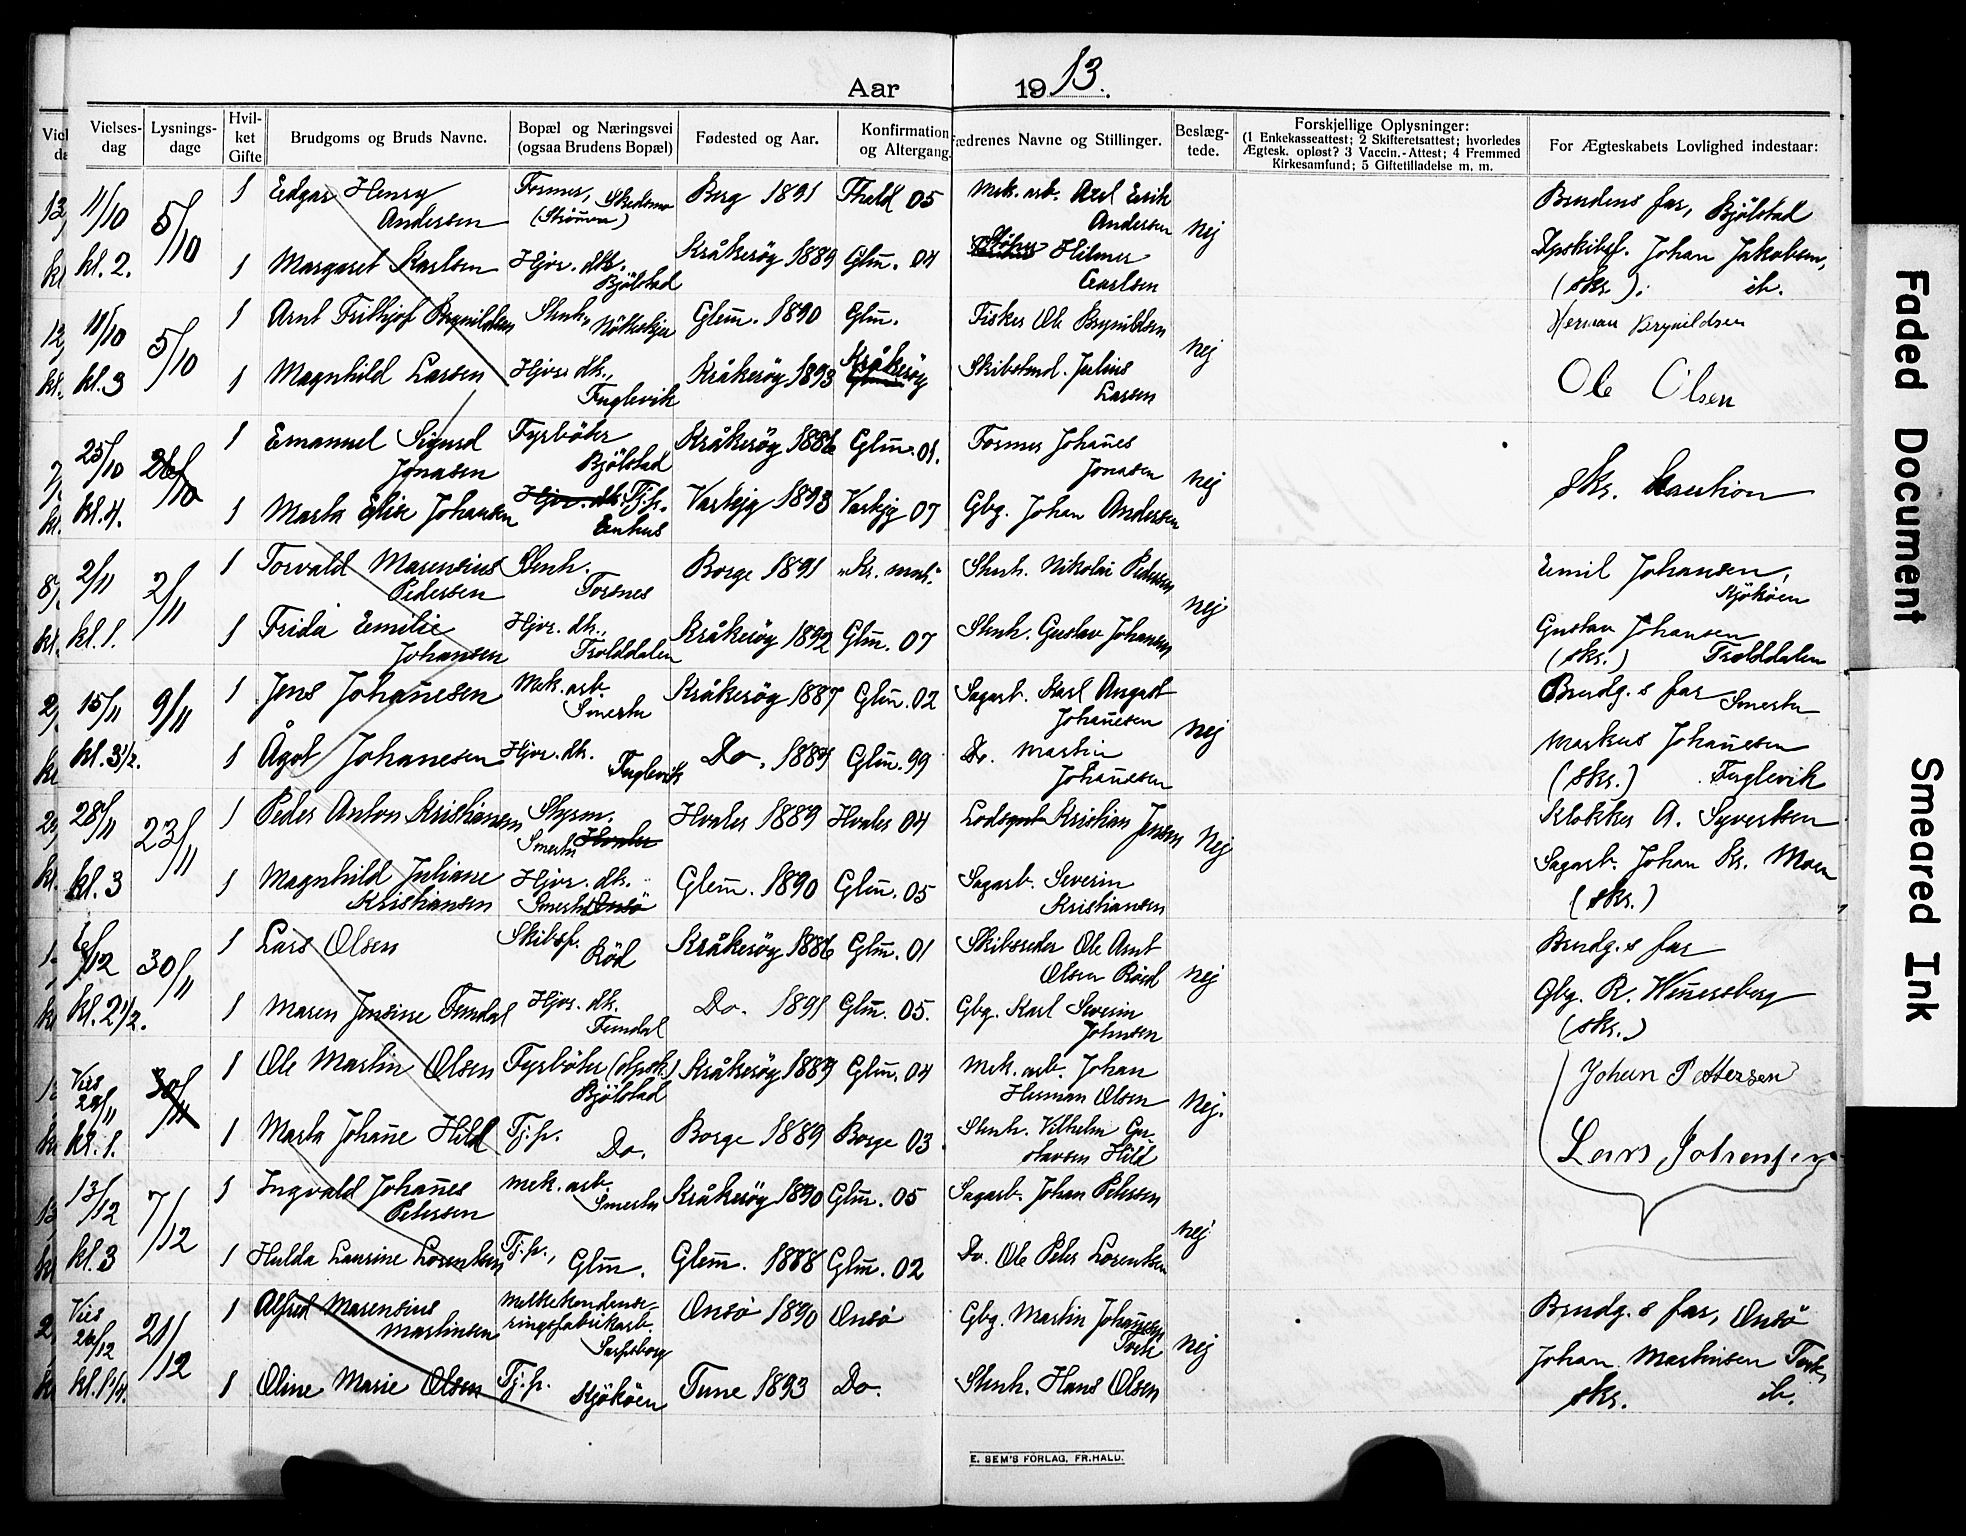 Aar 1913.
Vielses-dag
Lysnings-dage
Hvil-ket Gifte
Brudgoms og Bruds Navne.
Bopæl og Næringsvei (ogsaa Brudens Bopæl)
Fødested og Aar.
Konfirmation og Altergang.
Fædrenes Navne og Stillinger.
Beslæg-tede.
Forskjellige Oplysninger:
(1 Enkekasseattest; 2 Skifteretsattest; hvorledes
Ægtesk. opløst? 3 Vaccin.-Attest; 4 Fremmed
Kirkesamfund; 5 Giftetilladelse m. m.
For Ægteskabets Lovlighed indestaar:
11/10 5/10 1 Edgar Henry Andersen Former, Skedsmo (Strömmen) Berg 1891 Fhald 05 Mek. arb. Axel Erik Andersen nej Brudens far, Bjölstad
kl. 2. 1 Margaret Karlsen Hjvr. dtr. Bjölstad Kråkeröy 1889 Glm. 04 Hilmer Carlsen Johan Jakobsen, (skr.): ib.
11/10 5/10 1 Arnt Fritjof Brynildsen Stenh. Glem. 1890 Glm. Fisker Ole Brynildsen nej Herman Brynildsen
kl. 3 1 Magnhild Larsen Hjvr. dtr., Fuglevik Kråkeröy 1893 Kråkeröy Skibstmd. Julius Larsen Ole Olsen
25/10 26/10 1 Emanuel Sigurd Jonasen Fyrböter Bjölstad Kråkeröy 1886 Glm. 01. Former Johannes Jonasen nej skr. kaution
kl. 4. 1 Marta Elise Johansen Hjvr. dtr. Tj.p. Enhus Varteig 1893 Varteig 07 Gbg. Johan Andersen
2/11 2/11 1 Torvald Marensius Pedersen Stenh. Torsnes Borge 1891 "Kr. mod." Stenh. Nikolai Pedersen nej Emil Johansen, Kjököen
kl. 1. 1 Frida Emilie Johansen Hjvr. dtr., Trolddalen Kråkeröy 1892 Glm. 07 Stenh. Gustav Johansen Gustav Johansen (skr.) Trolddalen
15/11 9/11 1 Jens Johannesen Mek. arb. Smertu Kråkeröy 1887 Glm. 02 Sagarb. Karl August Johannesen nej Brudg.s far Smertu
kl. 3 1/2. 1 Ågot Johannesen Hjvr. dtr. Fuglevik Do. 1884 Glm. 99 Do. Martin Johannesen Markus Johannesen (skr.) Fuglevik
28/11 23/11 1 Peder Anton Kristiansen Styrm. Smertu Hvaler Hvaler 1889 Hvaler 04 Lods Kristian Jensen Nej Klokker A. Syvertsen
kl. 3 1 Magnhild Juliane Kristiansen Hjvr. dtr. Smertu Onsö Glem. 1890 Glm. 05 Sagarb. Severin Kristiansen Sagarb. Johan Kr. Moen (skr.)
6/12 30/11 1 Lars Olsen Skibsf. Röd Kråkeröy 1886 Glm. 01 Skibsreder Ole Arnt Olsen Röd nej Brudg.s far
kl. 2 1/2. 1 Maren Jensine Femdal Hjvr. dtr. Femdal Do. 1891 Glm. 05. Gbg. Karl Severin Johnsen Gbg. R. Wennersberg (skr.)
Vies 29/11 30/11 1 Ole Martin Olsen Fyrböter (dpsk.) Bjölstad Kråkeröy 1889 Glm. 04 Mek. arb. Johan Herman Olsen Nej. Johan Pettersen
kl. 1. 1 Marta Johanne Hild Tj.p. Do. Borge 1889 Borge 03. Stenh. Vilhelm Gustavsen Hild
13/12 7/12 1 Ingvald Johannes Petersen Mek. arb. Smertu Kråkeröy 1890 Glm. 05 Sagarb. Johan Petersen nej
kl. 3 1 Hulda Laurine Lorentsen Tj.p., Glm. Glem. 1888 Glm. 02 Do. Ole Peter Lorentsen
Vies 26/12 21/12 1 Alfred Marensius Martinsen Melkekondenseringsfabrikarb. Sarpsborg Onsö 1890 Onsö Gbg. Martin Johannesen nej Brudg.s far, Onsö
kl. 1 1/4. 1 Oline Marie Olsen Tj.p. Kjököen Tune 1893 Do. Stenh. Hans Olsen Johan Martinsen skr. ib.
E. SEM'S FORLAG, FR.HALD.
Faded Document
Smeared Ink